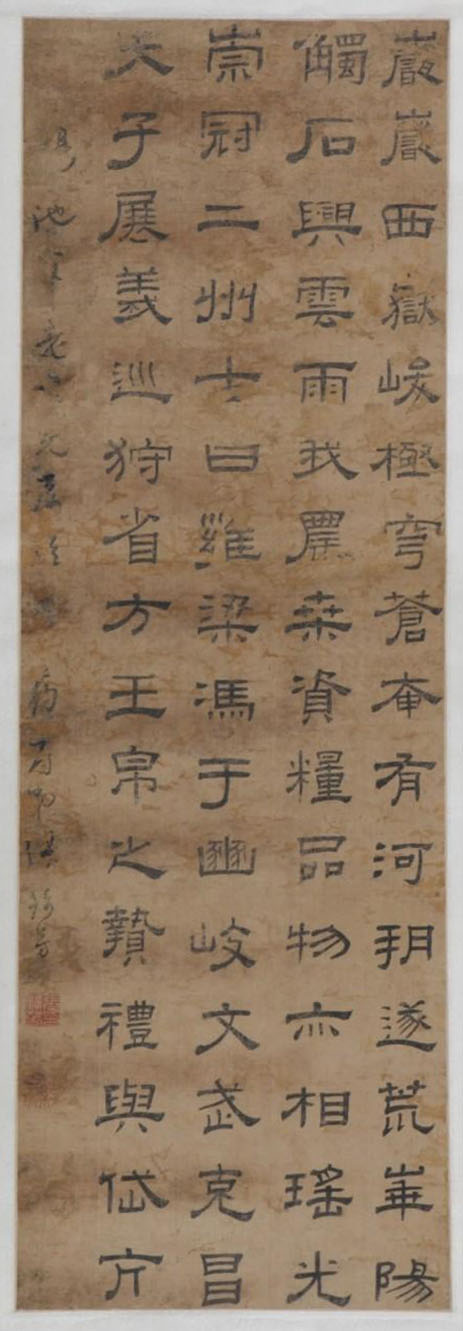 巖巖西嶽峻極穹蒼奄有河朔遂荒華陽
觸石興雲雨我農桑資糧品物亦相瑤光
崇冠二州古曰雍梁馮于豳岐文武克昌
天子展義巡狩省方玉帛之贄禮與岱亢
池年老